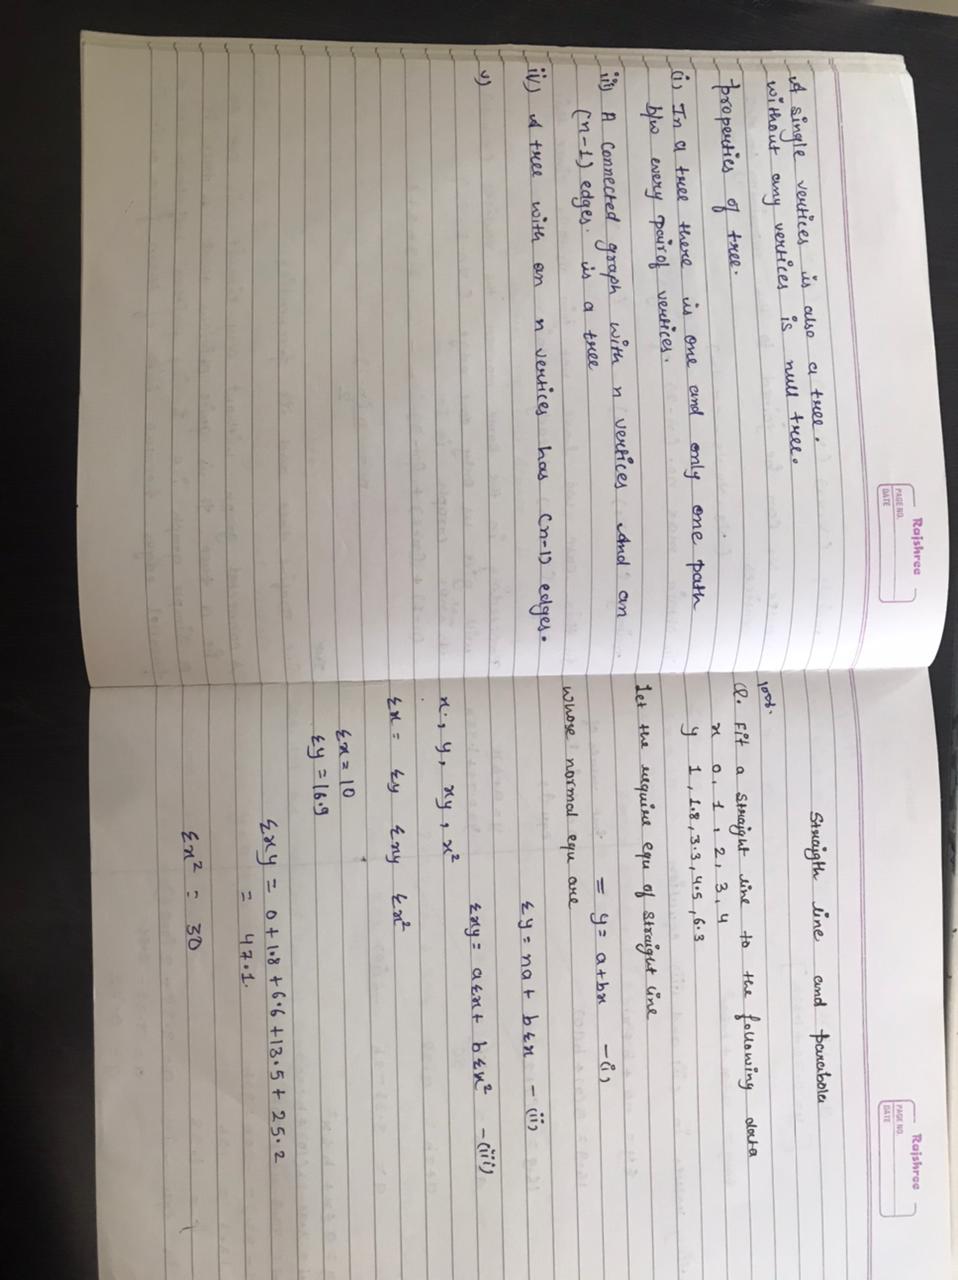 Rajshree
PAGE NO.
DATE
A single vertices is also a tree.
without any vertices is null tree.
properties of tree.
(i) In a tree there is one and only one path
b/w every pair of vertices.
iii) A connected graph with n vertices And an
(n-1) edges. is a tree
iv) A tree with an n vertices has (n-1) edges.
v)
Rajshree
PAGE NO.
DATE
Straigth line and parabola
Q. Fit a straight line to the following data
x 0, 1, 2, 3, 4
y 1, 1.8, 3.3, 4.5, 6.3
Let the require equ of straight line
= y = a+bx -(i)
whose normal equ are
Σy = na + bΣx - (ii)
Σxy = aΣx + bΣx² -(iii)
x, y, xy, x²
Σx = Σy Σxy Σx²
Σx = 10
Σy = 16.9
Σxy = 0+1.8+6.6+13.5+25.2
= 47.1.
Σx² = 30